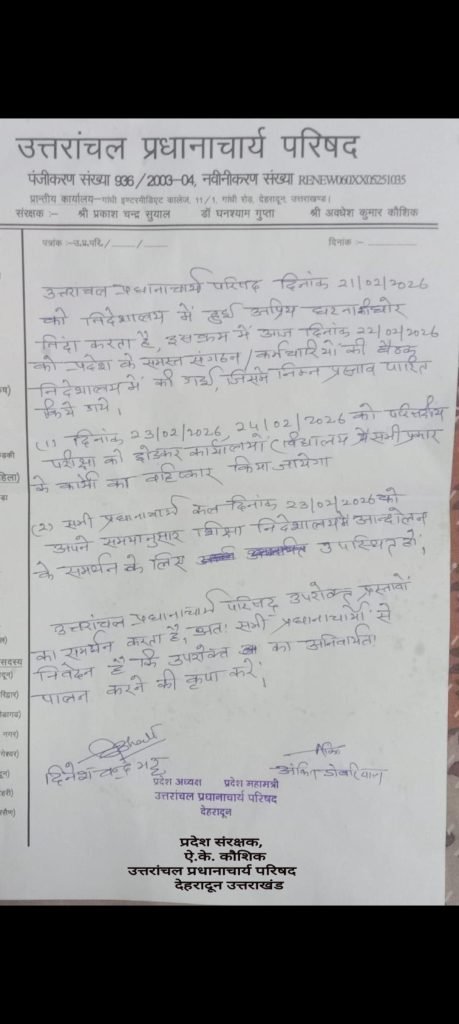 उत्तरांचल प्रधानाचार्य परिषद
पंजीकरण संख्या 936/2003-04, नवीनीकरण संख्या RENEW060XX05251035
प्रान्तीय कार्यालय-गांधी इण्टरमीडिएट कालेज, 11/1, गांधी रोड़, देहरादून, उत्तराखण्ड।
संरक्षक :- श्री प्रकाश चन्द्र सुयाल डॉ घनश्याम गुप्ता श्री अवधेश कुमार कौशिक
पत्रांक :-उ.प्र.परि./ / दिनांक :-
उत्तरांचल प्रधानाचार्य परिषद दिनांक 21/02/2026
को निदेशालय में हुई अप्रिय घटना की घोर
निंदा करता है, इस क्रम में आज दिनांक 22/02/2026
को प्रदेश के समस्त संगठन/कर्मचारियों की बैठक
निदेशालय में की गई, जिसमे निम्न प्रस्ताव पारित
किये गये।
(1) दिनांक 23/02/2026, 24/02/2026 को परिषदीय
परीक्षा को छोडकर कार्यालयों (विद्यालय में सभी प्रकार
के कार्यो का बहिष्कार किया जायेगा
(2) सभी प्रधानाचार्य कल दिनांक 23/02/2026 को
अपने समयानुसार शिक्षा निदेशालय मे आन्दोलन
के समर्थन के लिए उपस्थित हों,
उत्तरांचल प्रधानाचार्य परिषद् उपरोक्त प्रस्तावों
का समर्थन करता है, अतः सभी प्रधानाचार्यो से
निवेदन है कि उपरोक्त का अनिवार्यता
पालन करने की कृपा करें,
दिनेश चन्द्र भट्ट अंकित डोबरियाल
प्रदेश अध्यक्ष प्रदेश महामंत्री
उत्तरांचल प्रधानाचार्य परिषद
देहरादून
प्रदेश संरक्षक,
ऐ.के. कौशिक
उत्तरांचल प्रधानाचार्य परिषद
देहरादून उत्तराखंड